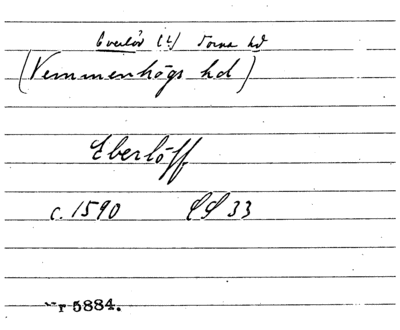 Everlöv (?) Torna hd
(Vemmenhögs hd)
Eberlöff
c. 1590 LL 33
Nr 5884.